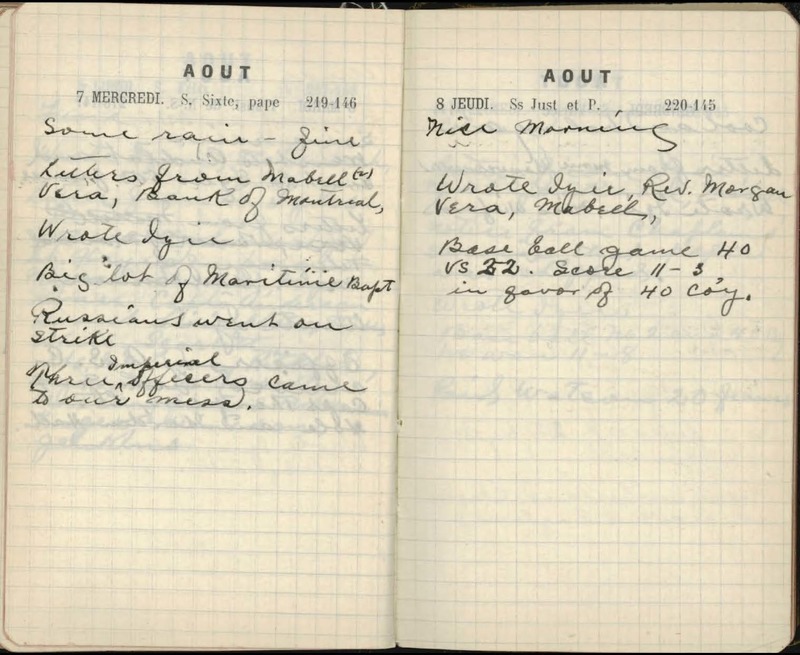 AOUT
7 MERCREDI. S. Sixte, pape 219-146
Some rain - fine
Letters from Mabell (2)
Vera, Bank of Montreal,
Wrote Izie
Big lot of Maritime Bapt
Russians went on
strike
Three Imperial officers came
to our mess.
AOUT
8 JEUDI. Ss Just et P. 220-145
Nice Morning
Wrote Izie, Rev. Morgan
Vera, Mabell,
Base ball game 40
vs 22. Score 11-3
in favor of 40 Co'y.